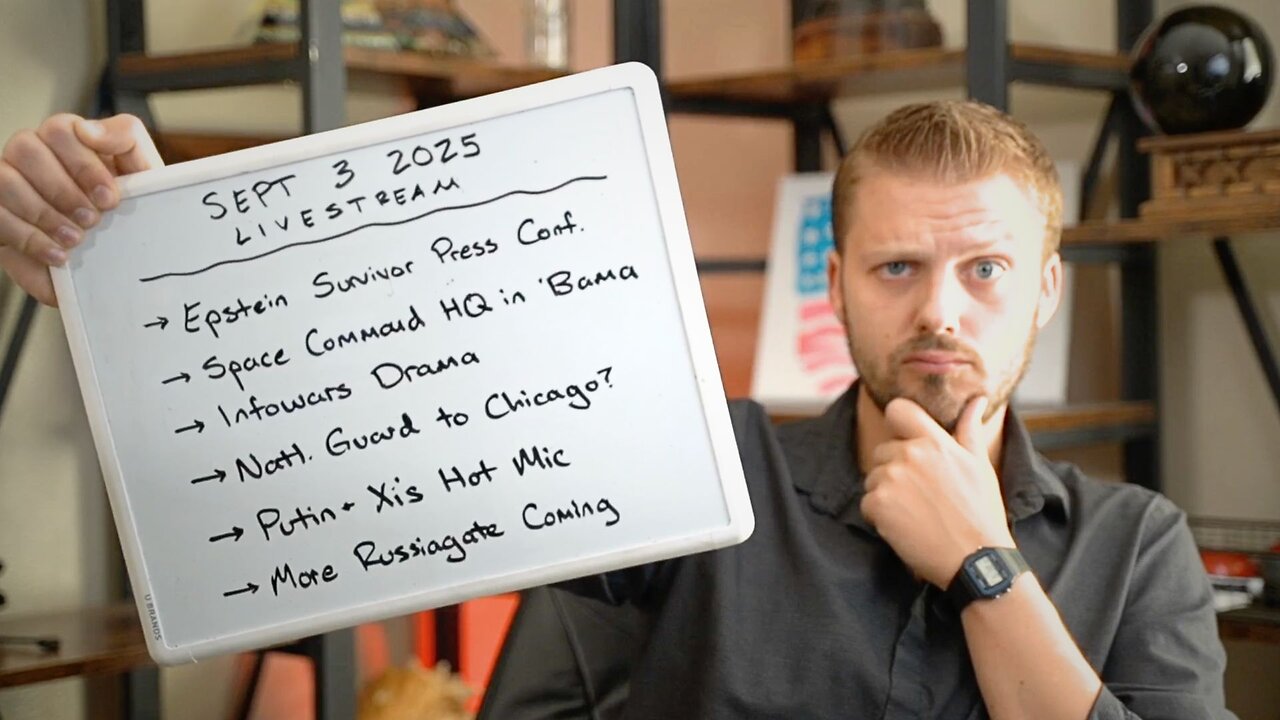 SEPT 3 2025
LIVESTREAM
→ Epstein Survivor Press Conf.
→ Space Command HQ in 'Bama
→ Infowars Drama
→ Natl. Guard to Chicago?
→ Putin + Xi's Hot Mic
→ More Russiagate Coming
U BRANDS